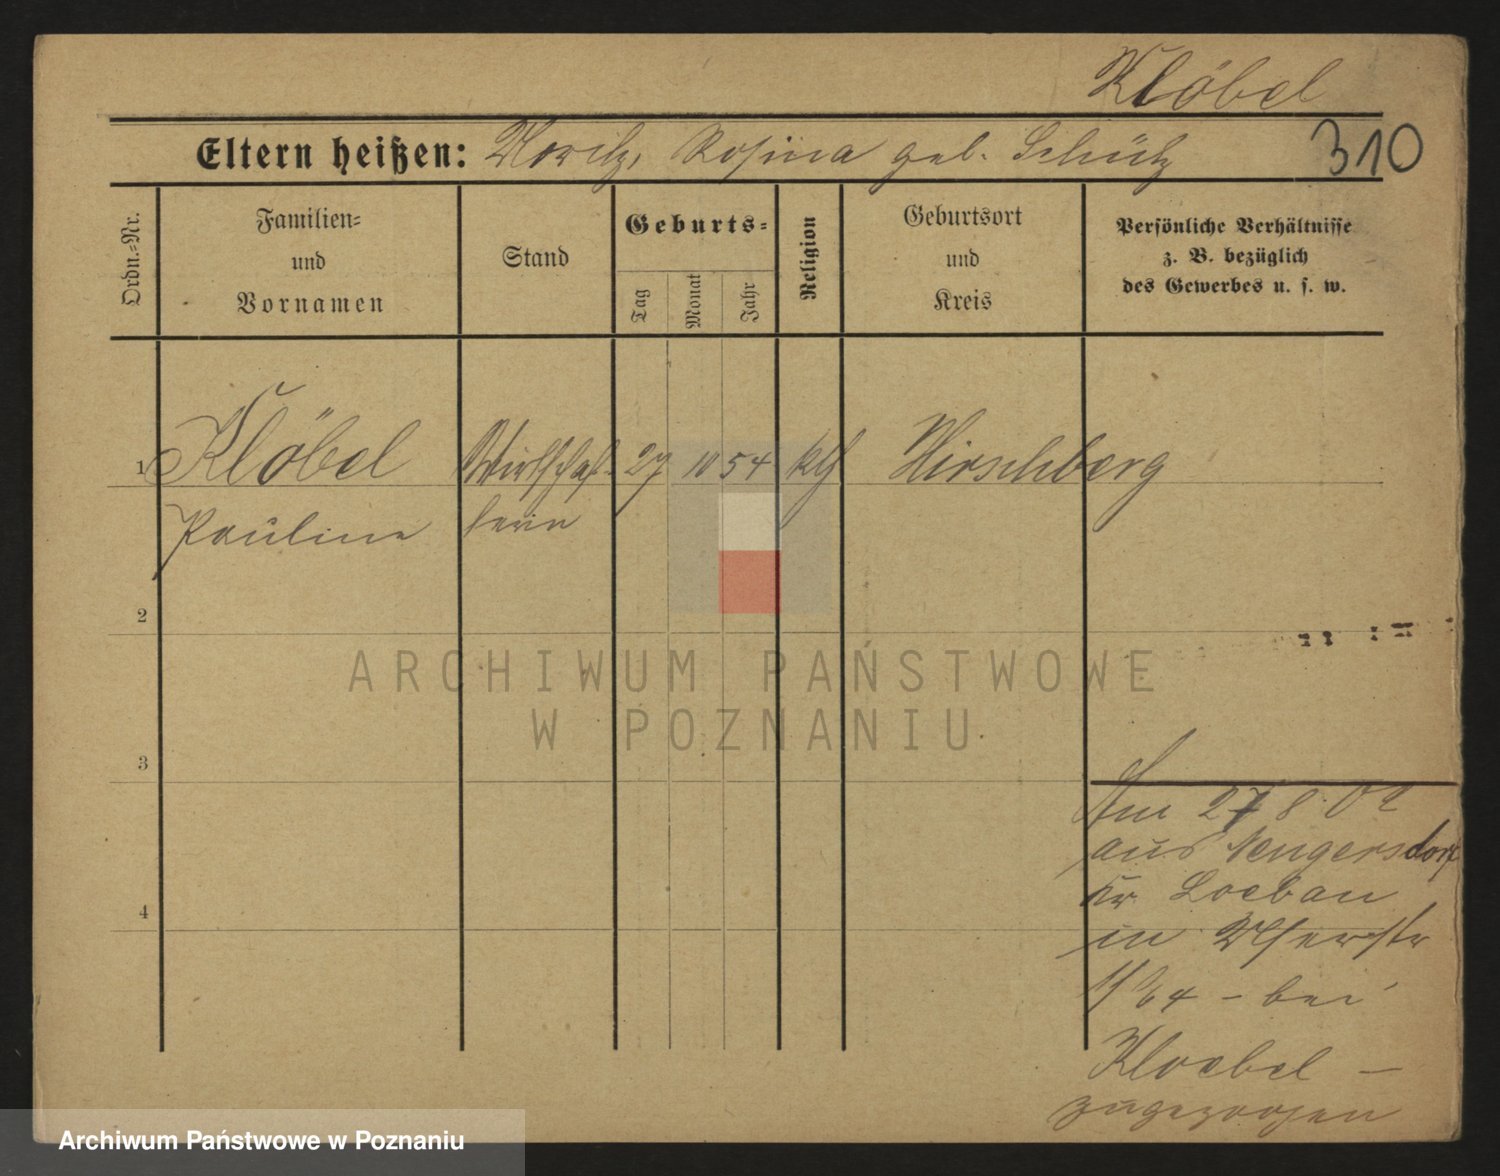 Klöbel
Eltern heißen: Moritz, Rosina geb. Schütz
310
Ordn.=Nr.
Familien=
und
Vornamen
Stand
Geburts=
Tag
Monat
Jahr
Religion
Geburtsort
und
Kreis
Persönliche Verhältnisse
z. B. bezüglich
des Gewerbes u. s. w.
1 Klöbel Wirtschaf- 27 10 54 kth Hirschberg
Pauline terin
2
ARCHIWUM PAŃSTWOWE
W POZNANIU
3
Am 27 8 02
aus Neugersdorf
Kr Loebau
in
4
- bei
Kloebel -
zugezogen
Archiwum Państwowe w Poznaniu